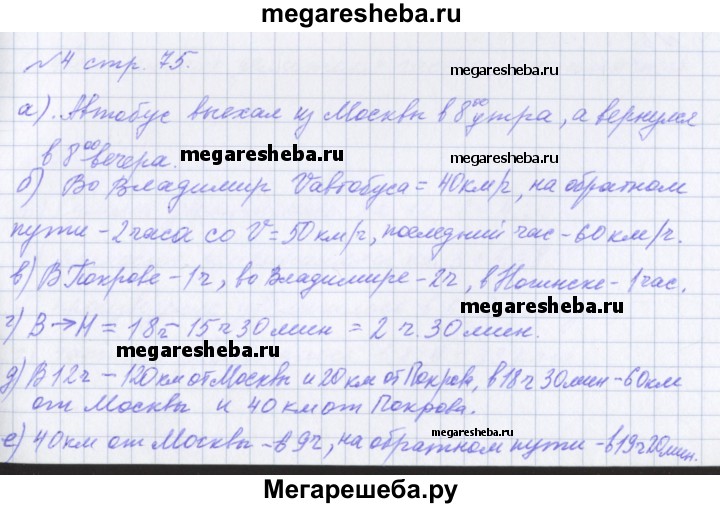 megaresheba.ru
№4 стр. 75.
megaresheba.ru
megaresheba.ru
а). Автобус выехал из Москвы в 8⁰⁰ утра, а вернулся
в 8⁰⁰ вечера.
megaresheba.ru
б) Во Владимир Vавтобуса = 40км/ч, на обратном
пути - 2 часа со V = 50 км/ч, последний час - 60 км/ч.
в) В Покрове - 1ч, во Владимире - 2ч, в Ногинске - 1час.
megaresheba.ru
г) В → Н = 18ч - 15ч 30 мин = 2 ч. 30 мин.
megaresheba.ru
д) В 12ч - 120км от Москвы и 20 км от Покрова, в 18ч 30мин - 60км
от Москвы и 40 км от Покрова.
megaresheba.ru
е) 40км от Москвы - в 9ч, на обратном пути - в 19ч 20мин.
Мегарешеба.ру